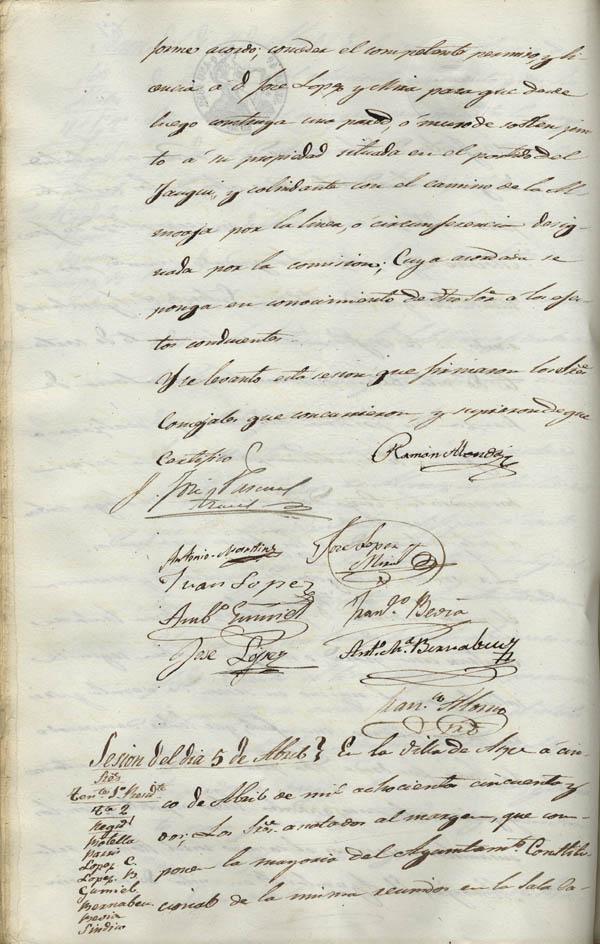 forme acordo; conceder el competente permiso, y li-
cencia a D. José Lopez y Mira para que desde
luego construya una pared, ó muro de sosten jun-
to á su propiedad situada en el partido del
y colindante con el camino de la
por la linea, ó circunferencia desig-
nada por la comision; Cuya acordada se
ponga en conocimiento de dho Sor. a los efec-
tos conducentes.
Y se levantó esta sesion que firmaron los Sres.
Concejales que concurrieron y supieron de que
Certifico
Ramon
José Pascual
Antonio Martinez
José Lopez y
Mira
Juan Lopez
Ambo. Gumiel
Franco. Bevia
José López
Anto. Ma. Bernabeu
Franco. Alonso
Srio.
Sesion del dia 5 de Abril
En la Villa de Aspe á cin-
co de Abril de mil ochocientos cincuenta y
dos; Los Sres. anotados al margen, que com-
ponen la mayoria del Ayuntamto. Constitu-
cional de la misma reunidos en la Sala Ca-
Sres.
Tente. 1o. Presidte.
Id. 2
Regidl.
Botella
Pavia
Lopez C.
Lopez B.
Gumiel
Bernabeu
Bevia
Sindico